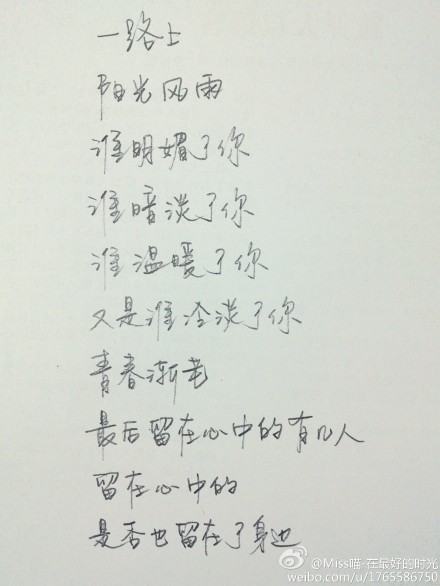 一路上
阳光风雨
谁明媚了你
谁暗淡了你
谁温暖了你
又是谁冷淡了你
青春渐老
最后留在心中的有几人
留在心中的
是否也留在了身边
@Miss喵-在最好的时光
weibo.com/u/1765586750